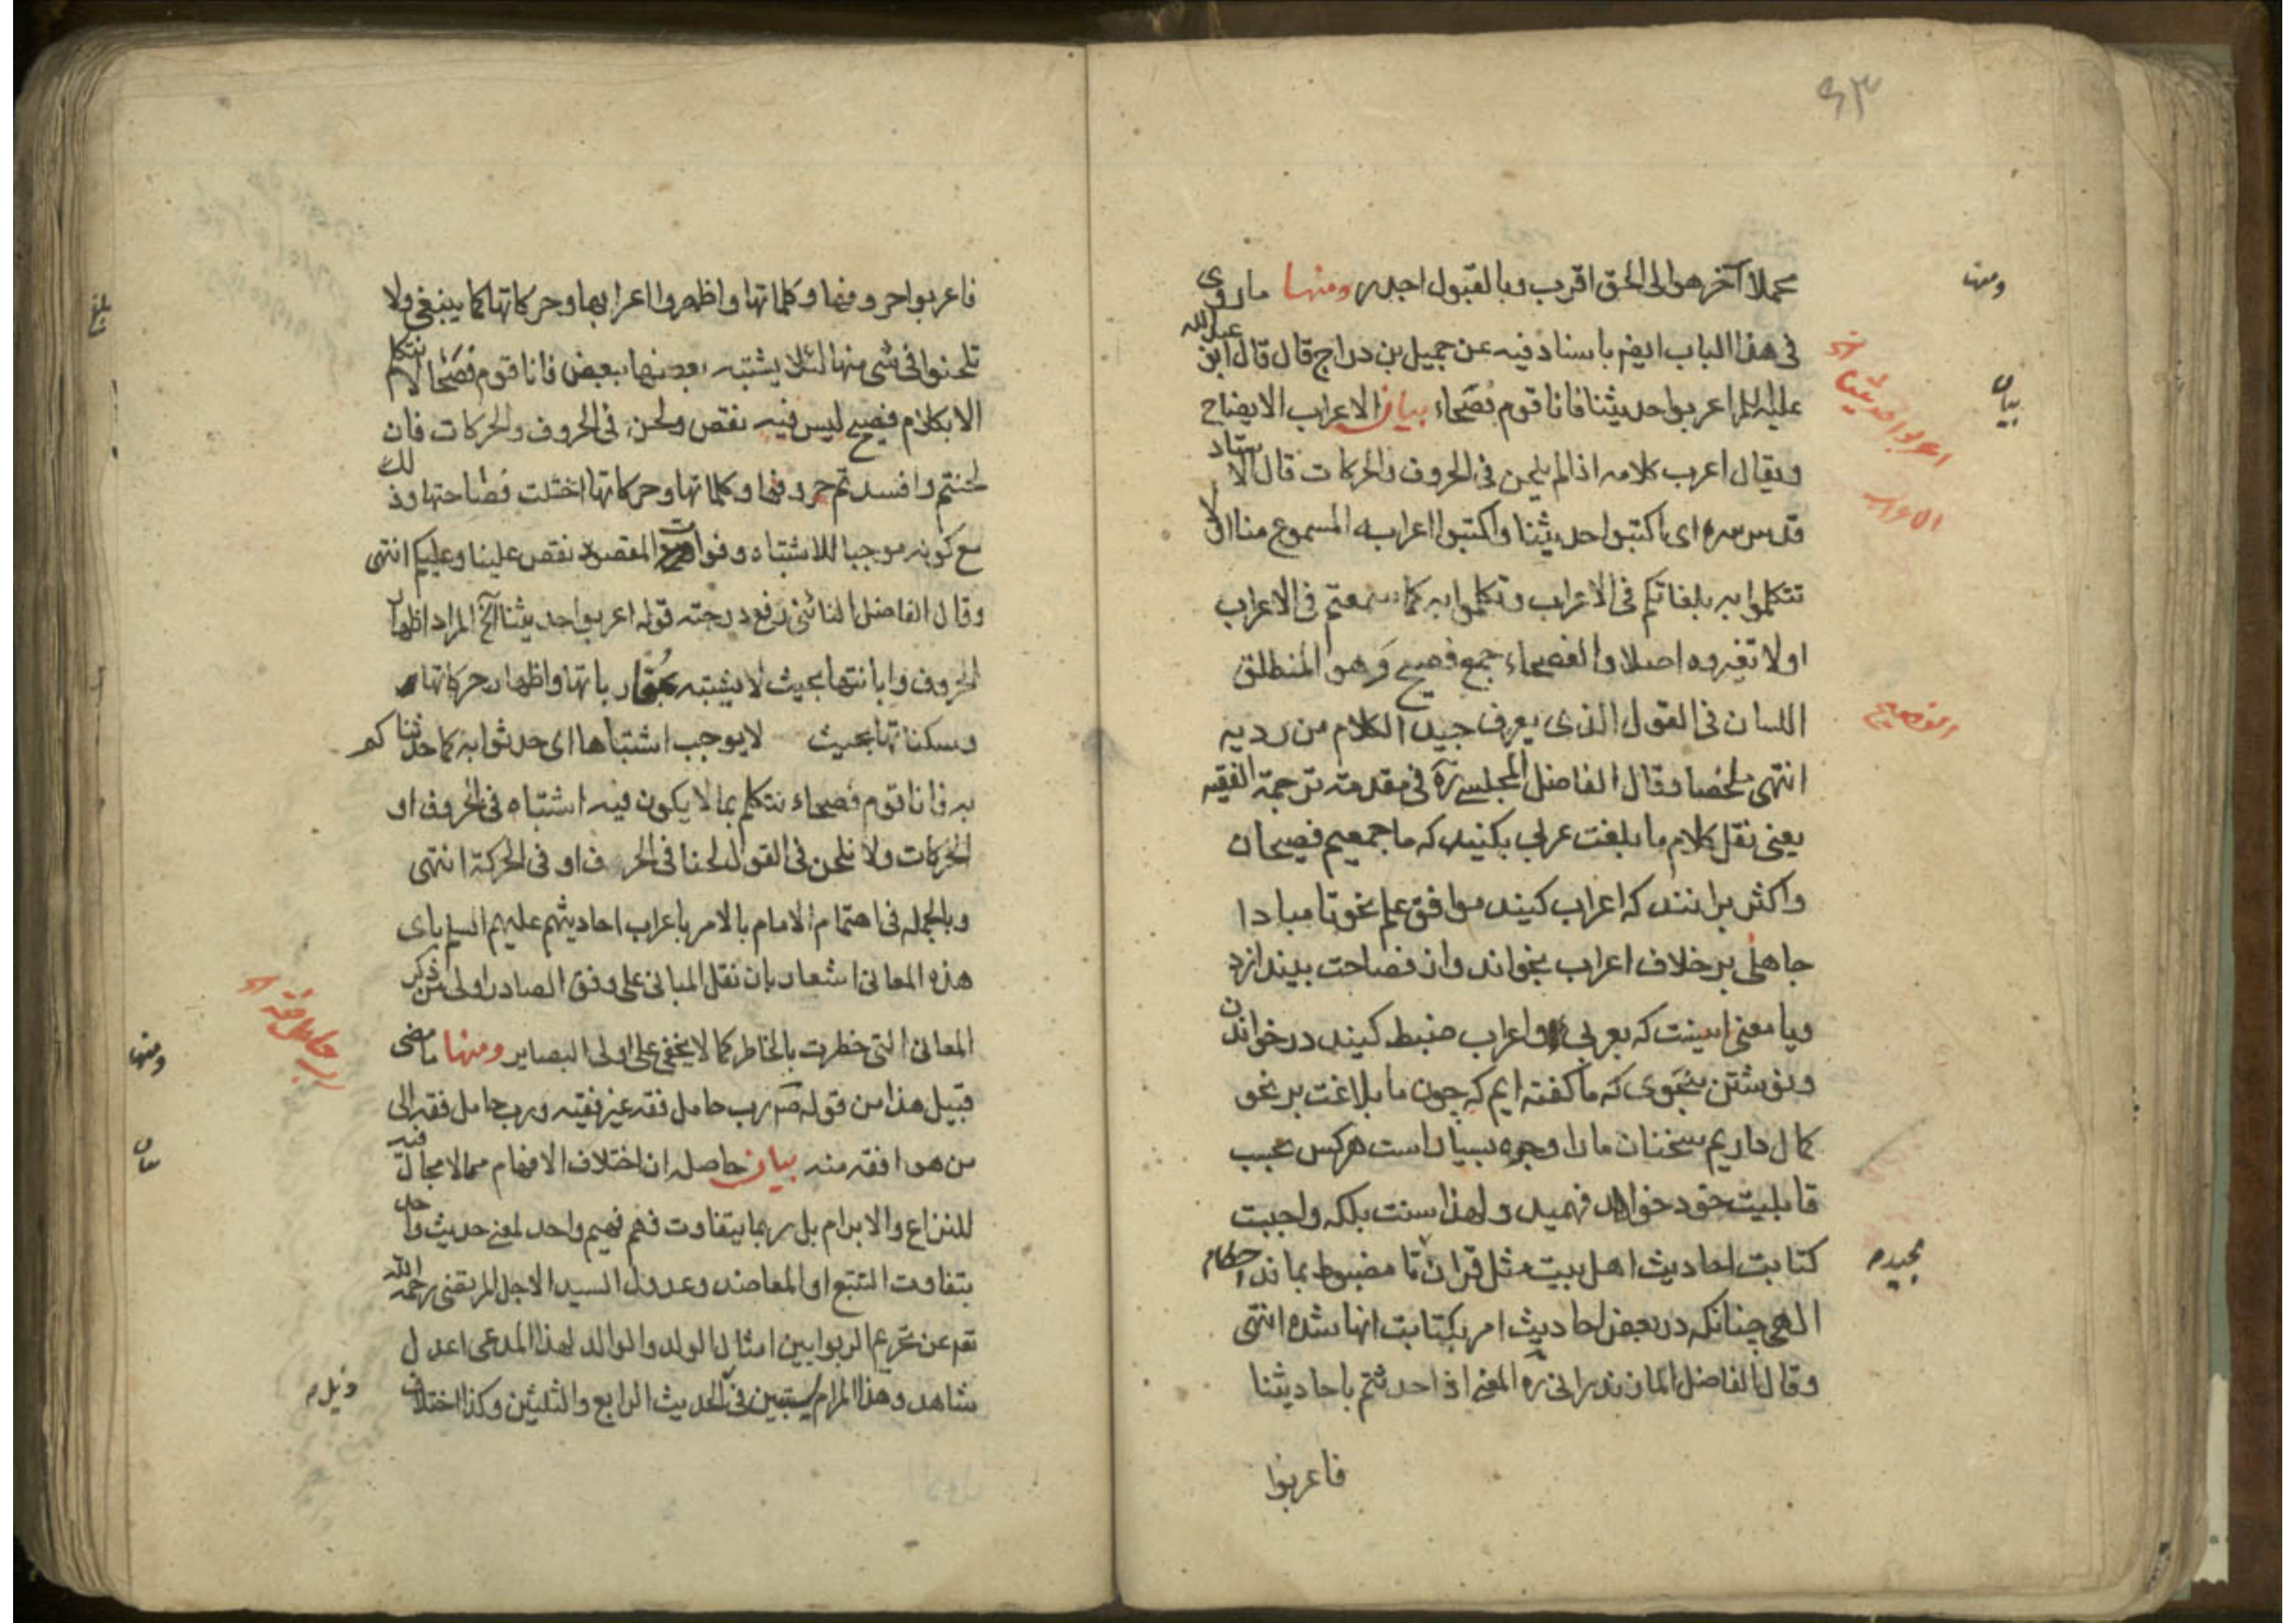 ٩٣
محملا آخر هو الی الحق اقرب وبالقبول اجدر ومنها ما روی
فی هذا الباب ایضم باسناد فیه عن جمیل بن دراج قال قال ابو عبد الله
علیه السلم اعربوا حدیثنا فانا قوم فصحاء بیان الاعراب الایضاح
ویقال اعرب کلامه اذا لم یلحن فی الحروف والحرکات قال الاستاد
قدس سره ای اکتبوا حدیثنا واکتبوا اعرابه المسموع منا لئلا
تتکلموا به بلغاتکم فی الاعراب وتکلموا به کما سمعتم فی الاعراب
او لا تغیروه اصلا والفصحاء جمع فصیح وهو المنطلق
اللسان فی القول الذی یعرف جید الکلام من ردیه
انتهی ملخصا وقال الفاضل المجلسی ره فی مقدمته ترجمة الفقیه
یعنی نقل کلام ما بلغت عربی بکنید که ما جمعیم فصیحان
واکثر برانند که اعراب کنید موافق علم نحو تا مبادا
جاهلی بر خلاف اعراب بخواند واز فصاحت بیندازد
ویا معنی اینست که بعربی واعراب ضبط کنید در خواندن
ونوشتن بنحوی که ما کفته ایم که چون ما بلاغت بر نحو
کمال داریم سخنان ما را وجوه بسیار است هرکس بحسب
قابلیت خود خواهد فهمید ولهذا سنت بلکه واجبت
کتابت احادیث اهل بیت مثل قران تا مضبوط بماند احکام
الهی چنانکه در بعض احادیث امر بکتابت انها شده انتهی
وقال الفاضل المازندرانی ره المعنی اذا حدثتم باحادیثنا
فاعربوا
ومنها
بیان
اعربوا حدیثنا
الاعراب
الفصیح
فاعربوا حروفها وکلماتها واظهروا اعرابها وحرکاتها کما ینبغی ولا
تلحنوا فی شی منها لئلا یشتبه بعضها ببعض فانا قوم فصحا لا نتکلم
الا بکلام فصیح لیس فیه نقص ولحن فی الحروف والحرکات فان
لحنتم وافسدتم حروفها وکلماتها وحرکاتها اختلت فصاحتها وذلک
مع کونه موجبا للاشتباه وفوات المقصود نقص علینا وعلیکم انتهی
وقال الفاضل النائنی رفع درجته قوله اعربوا حدیثنا آلخ المراد اظهار
الحروف وابانتها بحیث لا یشتبه بمقارباتها واظهار حرکاتها
وسکناتها بحیث لا یوجب اشتباها ای حدثوا به کما حدثناکم
به فانا قوم فصحاء نتکلم بما لا یکون فیه اشتباه فی الحروف او
الحرکات ولا نلحن فی القول لحنا فی الحرف او فی الحرکة انتهی
وبالجمله فی اهتمام الامام بالامر باعراب احادیثهم علیهم السلم بای
هذه المعانی اشعار بان نقل المبانی علی وفق الصادر اولی من ذکر
المعانی التی خطرت بالخاطر کما لا یخفی علی اولی البصایر ومنها ما مضی
قبیل هذا من قوله صم رب حامل فقه غیر فقیه ورب حامل فقه الی
من هو افقه منه بیان حاصله ان اختلاف الافهام مما لا مجال فیه
للنزاع والابرام بل ربما یتفاوت فهم فهیم واحد لمعنی حدیث واحد
بتفاوت التتبع او المعاضد وعدول السید الاجل المرتضی رحمه الله
تعم عن تحریم الربوا بین امثال الولد والوالد لهذا المدعی اعدل
شاهد وهذا المرام سیتبین فی الحدیث الرابع والثلثین وکذا اختلاف
بلغ
رب حامل فقه
ومنها
بیان